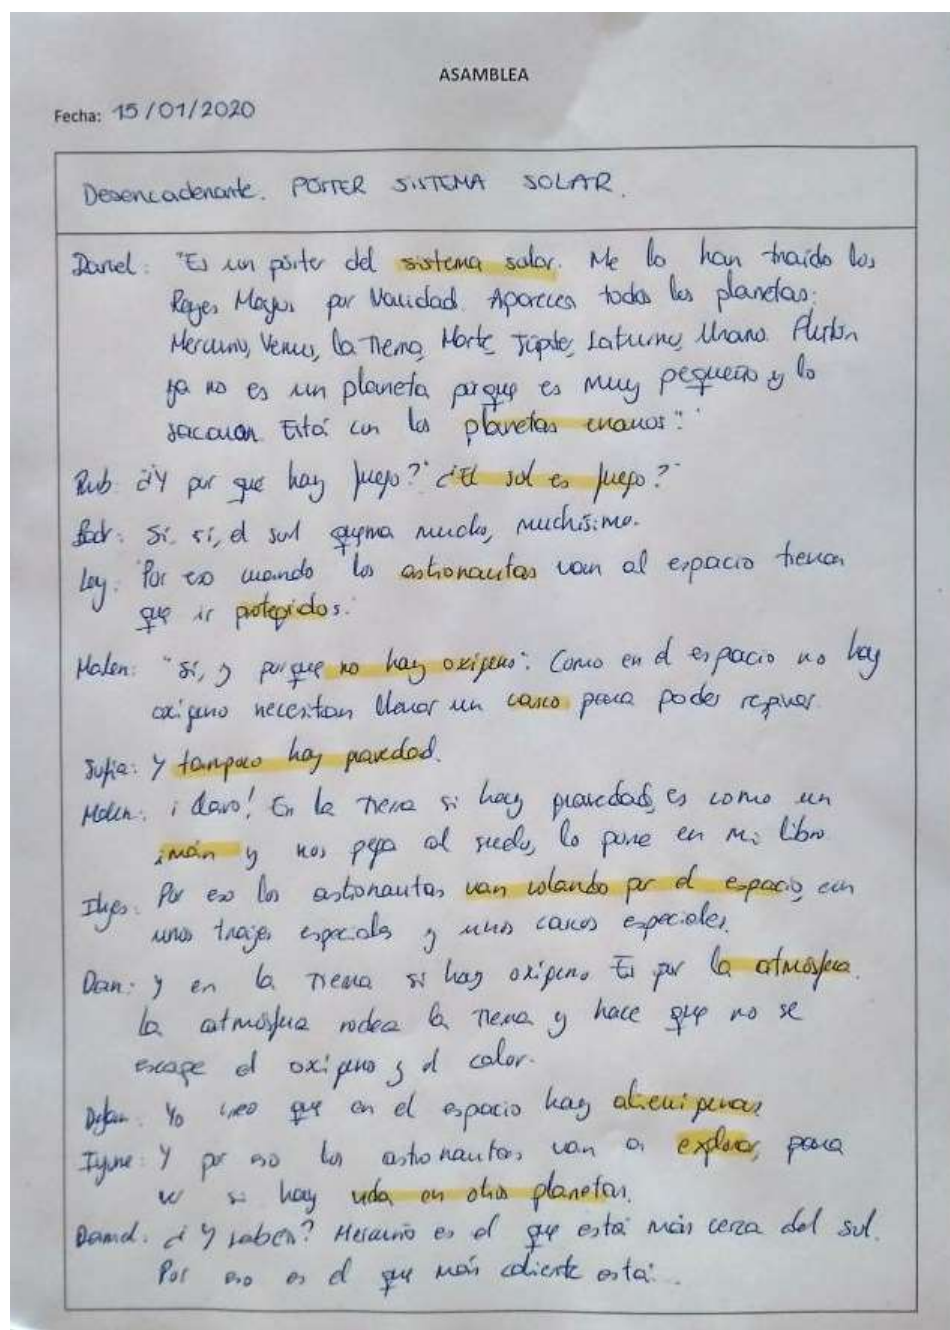 ASAMBLEA
Fecha: 15/01/2020
Desencadenante. PÓSTER SISTEMA SOLAR.
Daniel: "Es un póster del sistema solar. Me lo han traído los
Reyes Magos por Navidad. Aparecen todos los planetas:
Mercurio, Venus, la Tierra, Marte, Júpiter, Saturno, Urano. Plutón
ya no es un planeta porque es muy pequeño y lo
sacaron. Está con los planetas enanos".
Rub: ¿Y por que hay fuego? ¿El sol es fuego?
Sí, sí, el sol quema mucho, muchísimo.
Ley: Por eso cuando los astronautas van al espacio tienen
que ir protegidos.
Malen: "Sí, y porque no hay oxígeno". Como en el espacio no hay
oxígeno necesitan llevar un casco para poder respirar.
Sofía: Y tampoco hay gravedad.
Malen: ¡Claro! En la Tierra si hay gravedad, es como un
imán y nos pega al suelo, lo pone en mi libro
Por eso los astronautas van volando por el espacio, con
unos trajes especiales y unos cascos especiales.
Dan: Y en la Tierra si hay oxígeno Es por la atmósfera.
La atmósfera rodea la Tierra y hace que no se
escape el oxígeno y el calor.
Yo creo que en el espacio hay alienígenas
Y por eso los astronautas van a explorar, para
ver si hay vida en otros planetas.
¿Y saben? Mercurio es el que está más cerca del sol.
Por eso es el que más caliente está.